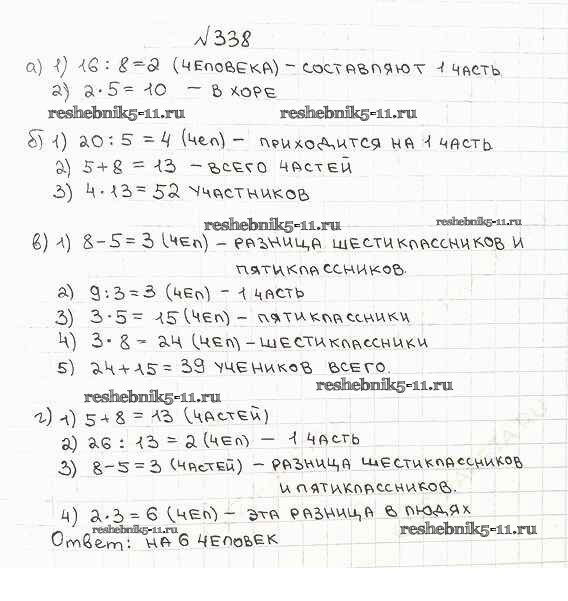 №338
а) 1) 16 : 8 = 2 (человека) – составляют 1 часть
2) 2 · 5 = 10 – в хоре
reshebnik5-11.ru reshebnik5-11.ru
б) 1) 20 : 5 = 4 (чел) – приходится на 1 часть
2) 5 + 8 = 13 – всего частей
3) 4 · 13 = 52 участников
reshebnik5-11.ru reshebnik5-11.ru
в) 1) 8 – 5 = 3 (чел) – разница шестиклассников и
пятиклассников.
2) 9 : 3 = 3 (чел) – 1 часть
3) 3 · 5 = 15 (чел) – пятиклассники
4) 3 · 8 = 24 (чел) – шестиклассники
5) 24 + 15 = 39 учеников всего.
reshebnik5-11.ru reshebnik5-11.ru
г) 1) 5 + 8 = 13 (частей)
2) 26 : 13 = 2 (чел) – 1 часть
3) 8 – 5 = 3 (частей) – разница шестиклассников
и пятиклассников.
4) 2 · 3 = 6 (чел) – эта разница в людях
reshebnik5-11.ru reshebnik5-11.ru
Ответ: на 6 человек